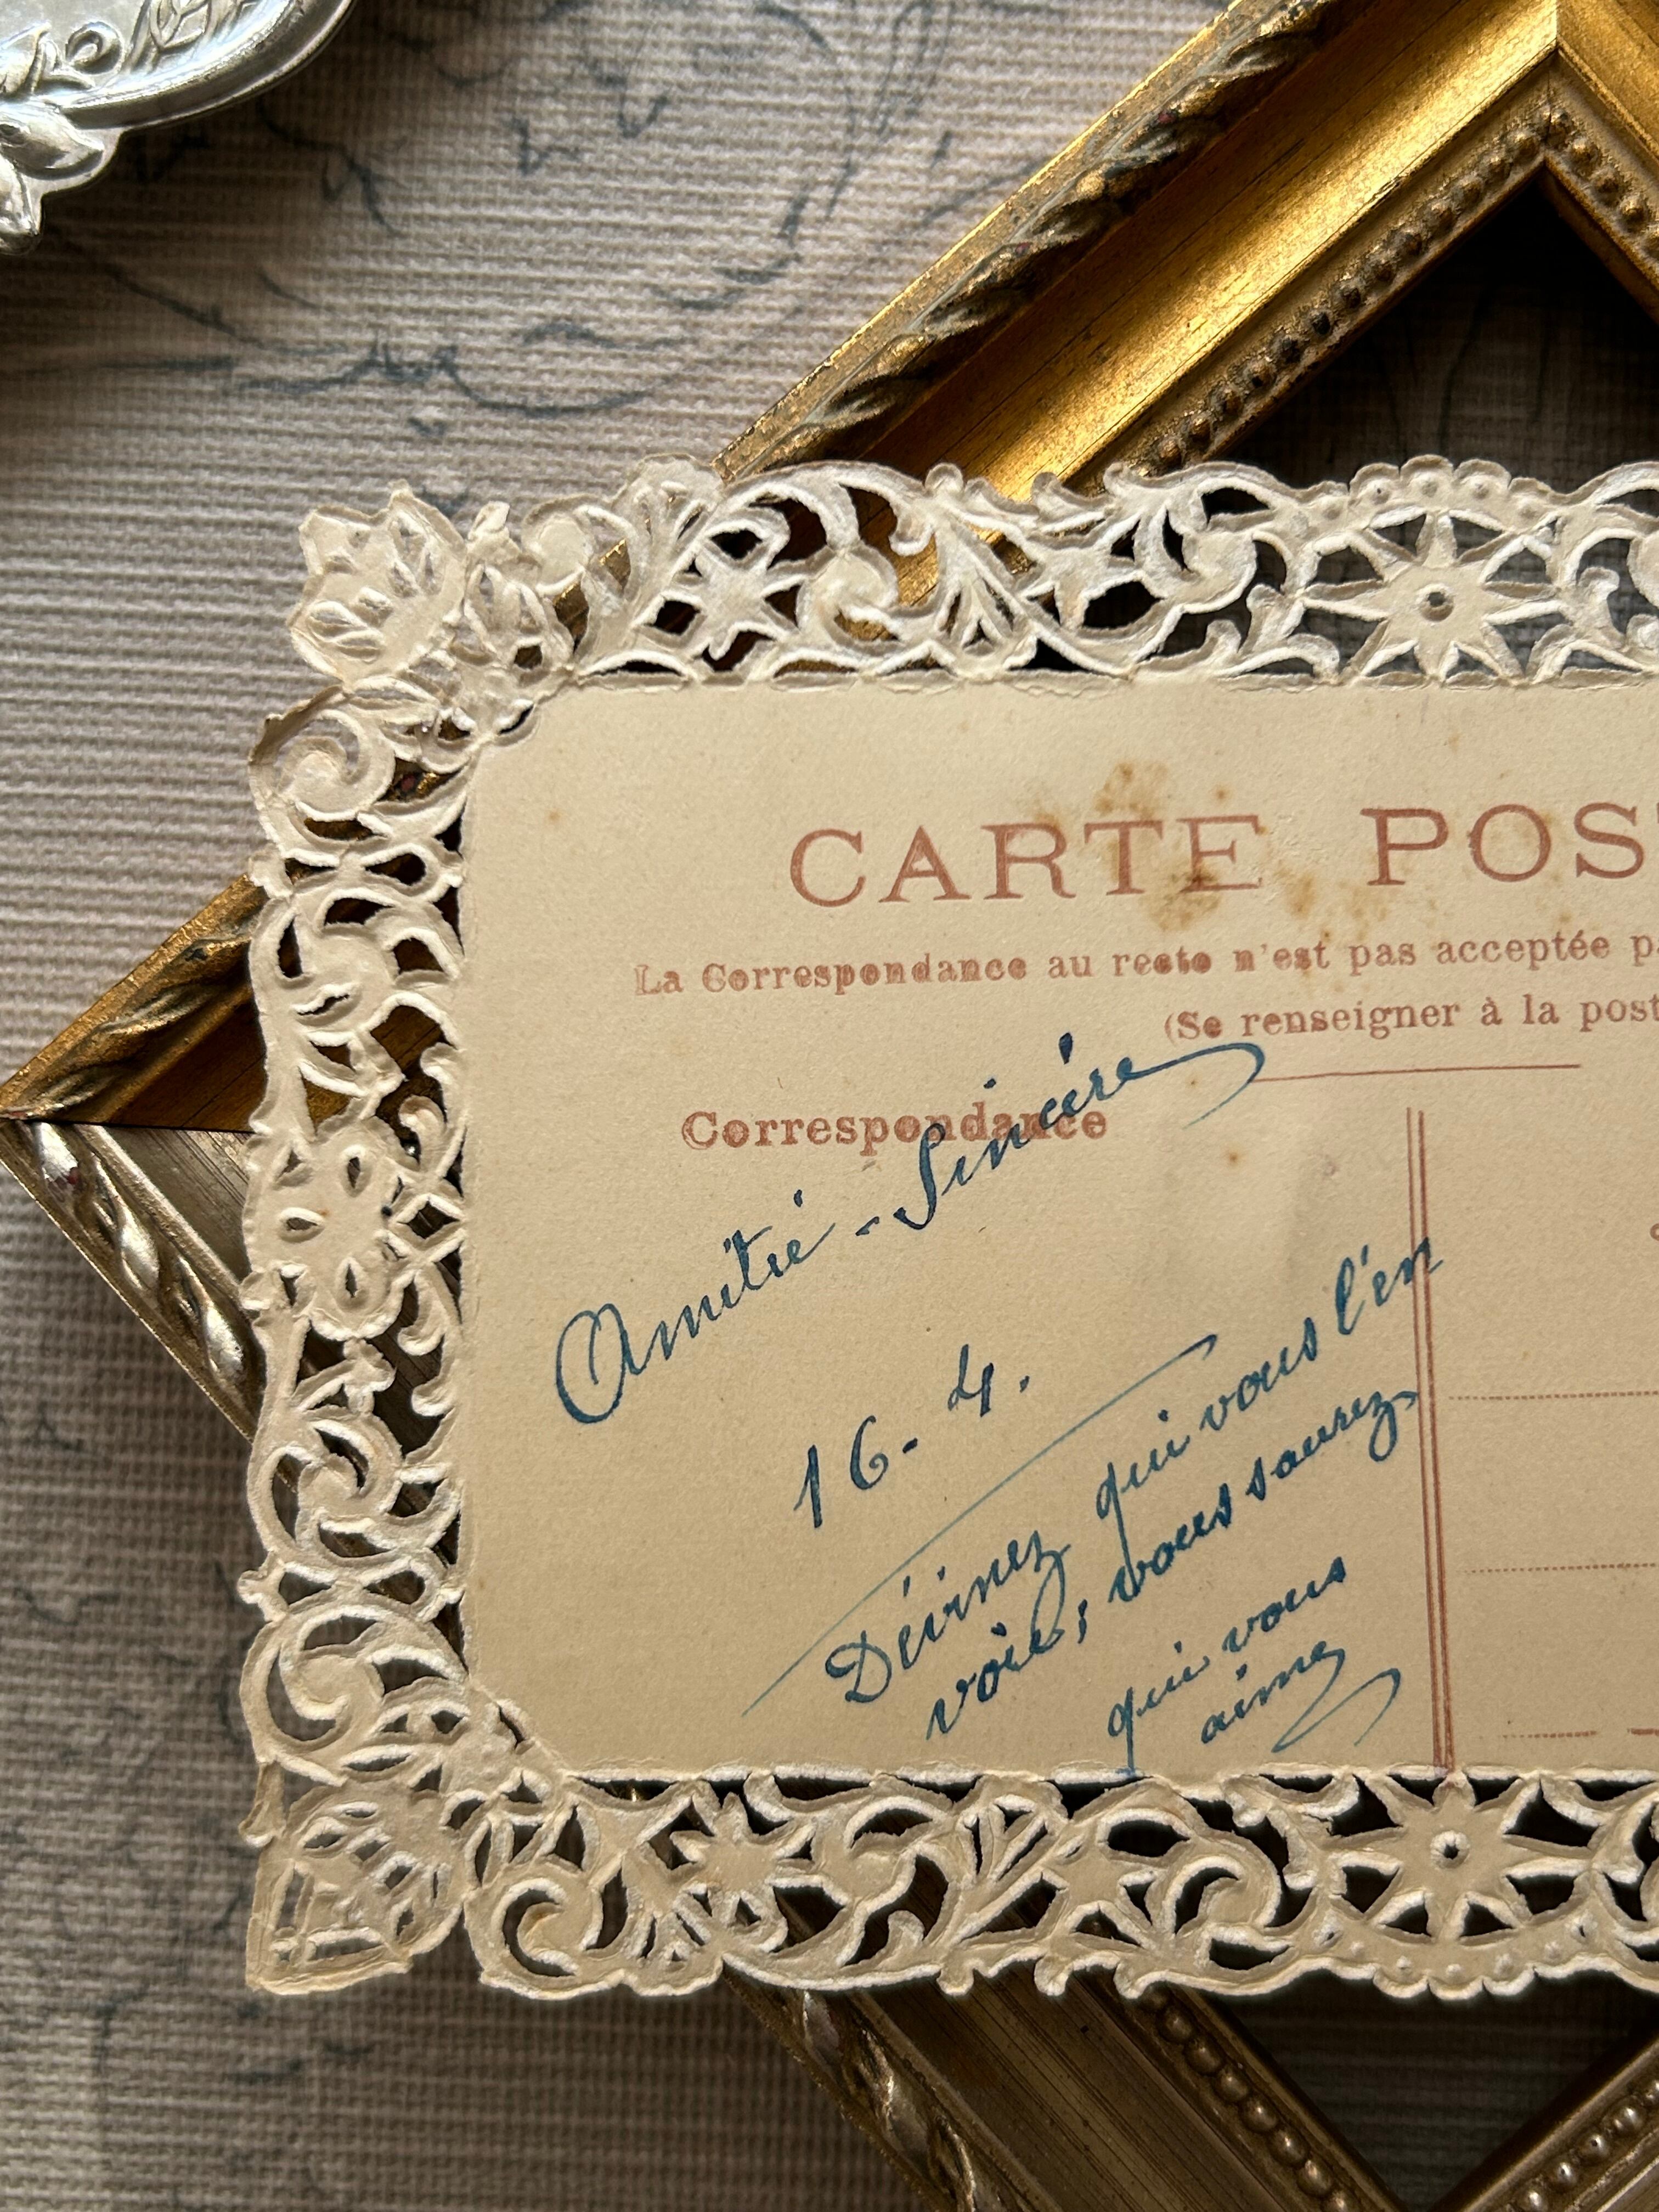 CARTE POS
La Correspondance au recto n'est pas acceptée pa
(Se renseigner à la post
Correspondance
Amitié - Sincère
16 - 4.
Devinez qui vous l'en
voie, vous saurez
qui vous
aime